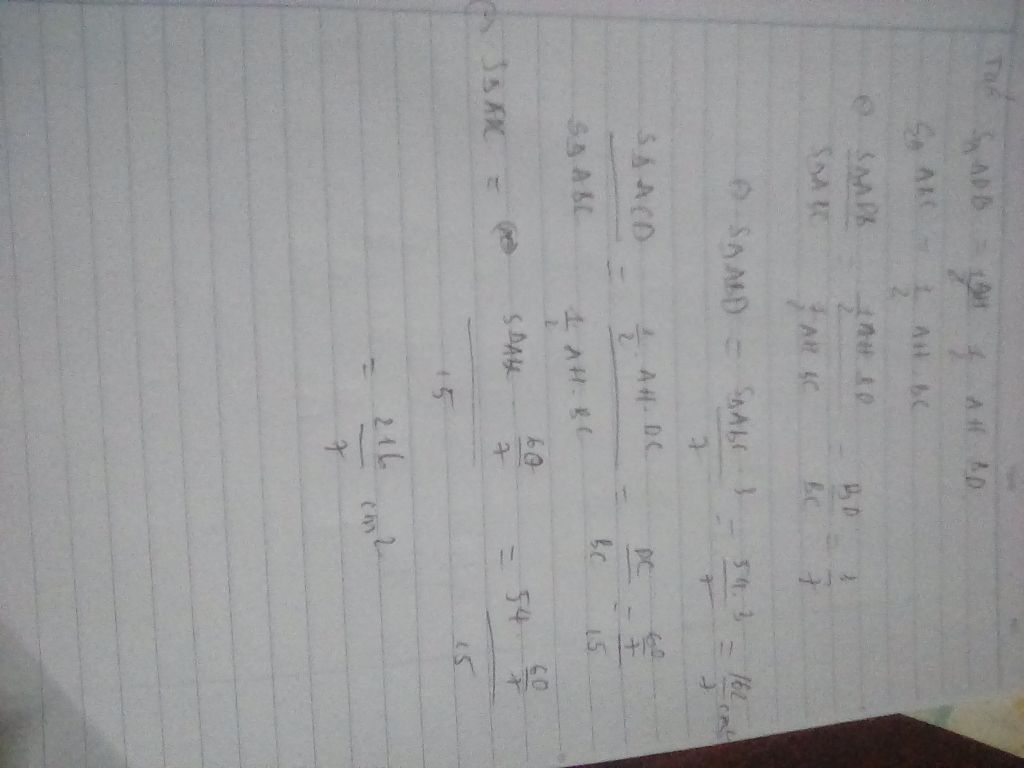 Ta có S△ADB = 1/2 AH · BD
S△ABC = 1/2 AH · BC
=> S△ADB / S△ABC = (1/2 AH · BD) / (1/2 AH · BC) = BD / BC = 3/7
=> S△ABD = (S△ABC · 3) / 7 = (54 · 3) / 7 = 162/7 cm²
S△ACD / S△ABC = (1/2 · AH · DC) / (1/2 AH · BC) = DC / BC = (60/7) / 15
=> (S△ABC · 60/7) / 15 = (54 · 60/7) / 15
= 216/7 cm²